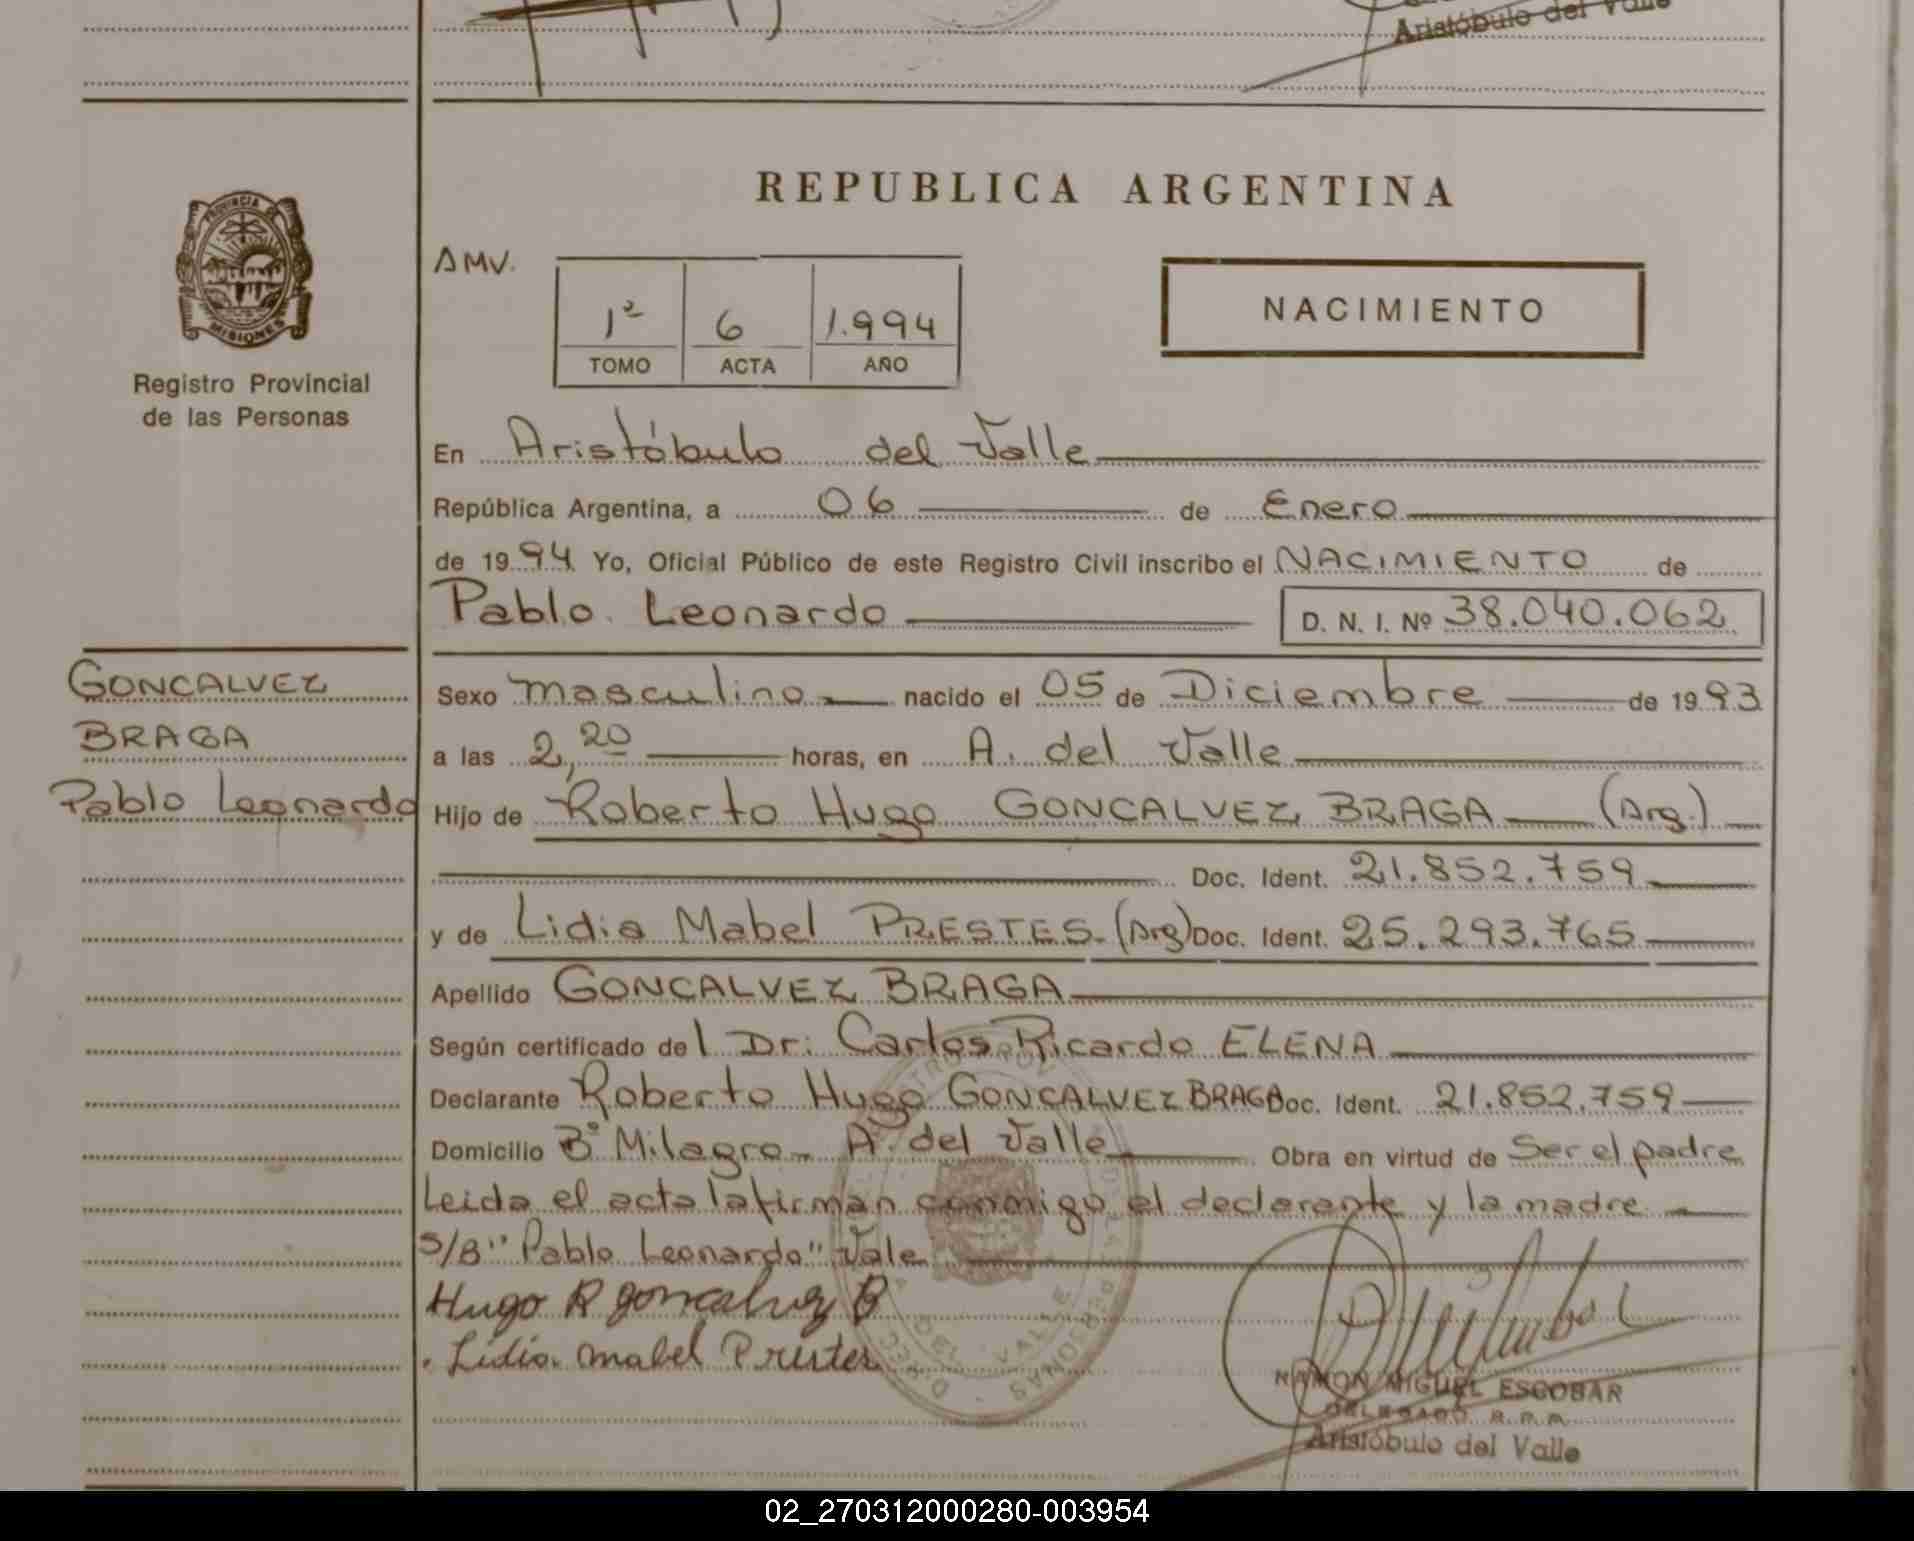 Aristóbulo del Valle
PROVINCIA DE
MISIONES
Registro Provincial
de las Personas
REPUBLICA ARGENTINA
AMV.
1º 6 1.994
TOMO ACTA AÑO
NACIMIENTO
En Aristóbulo del Valle
República Argentina, a 06 de Enero
de 1994 Yo, Oficial Público de este Registro Civil inscribo el NACIMIENTO de
Pablo Leonardo D. N. I. Nº 38.040.062
GONCALVEZ
BRAGA
Pablo Leonardo
Sexo masculino nacido el 05 de Diciembre de 1993
a las 2,20 horas, en A. del Valle
Hijo de Roberto Hugo GONCALVEZ BRAGA (Arg.)
Doc. Ident. 21.852.759
y de Lidia Mabel PRESTES (Arg) Doc. Ident. 25.293.765
Apellido GONCALVEZ BRAGA
Según certificado del Dr: Carlos Ricardo ELENA
Declarante Roberto Hugo GONCALVEZ BRAGA Doc. Ident. 21.852.759
Domicilio Bº Milagro A. del Valle Obra en virtud de Ser el padre
Leida el acta la firman conmigo el declarante y la madre
S/B "Pablo Leonardo" Vale
Hugo R Goncalvez B
Lidia mabel Prestes
DEL VALLE
PERSONAS
RAMON MIGUEL ESCOBAR
DELEGADO R.P.P.
Aristóbulo del Valle
02_270312000280-003954